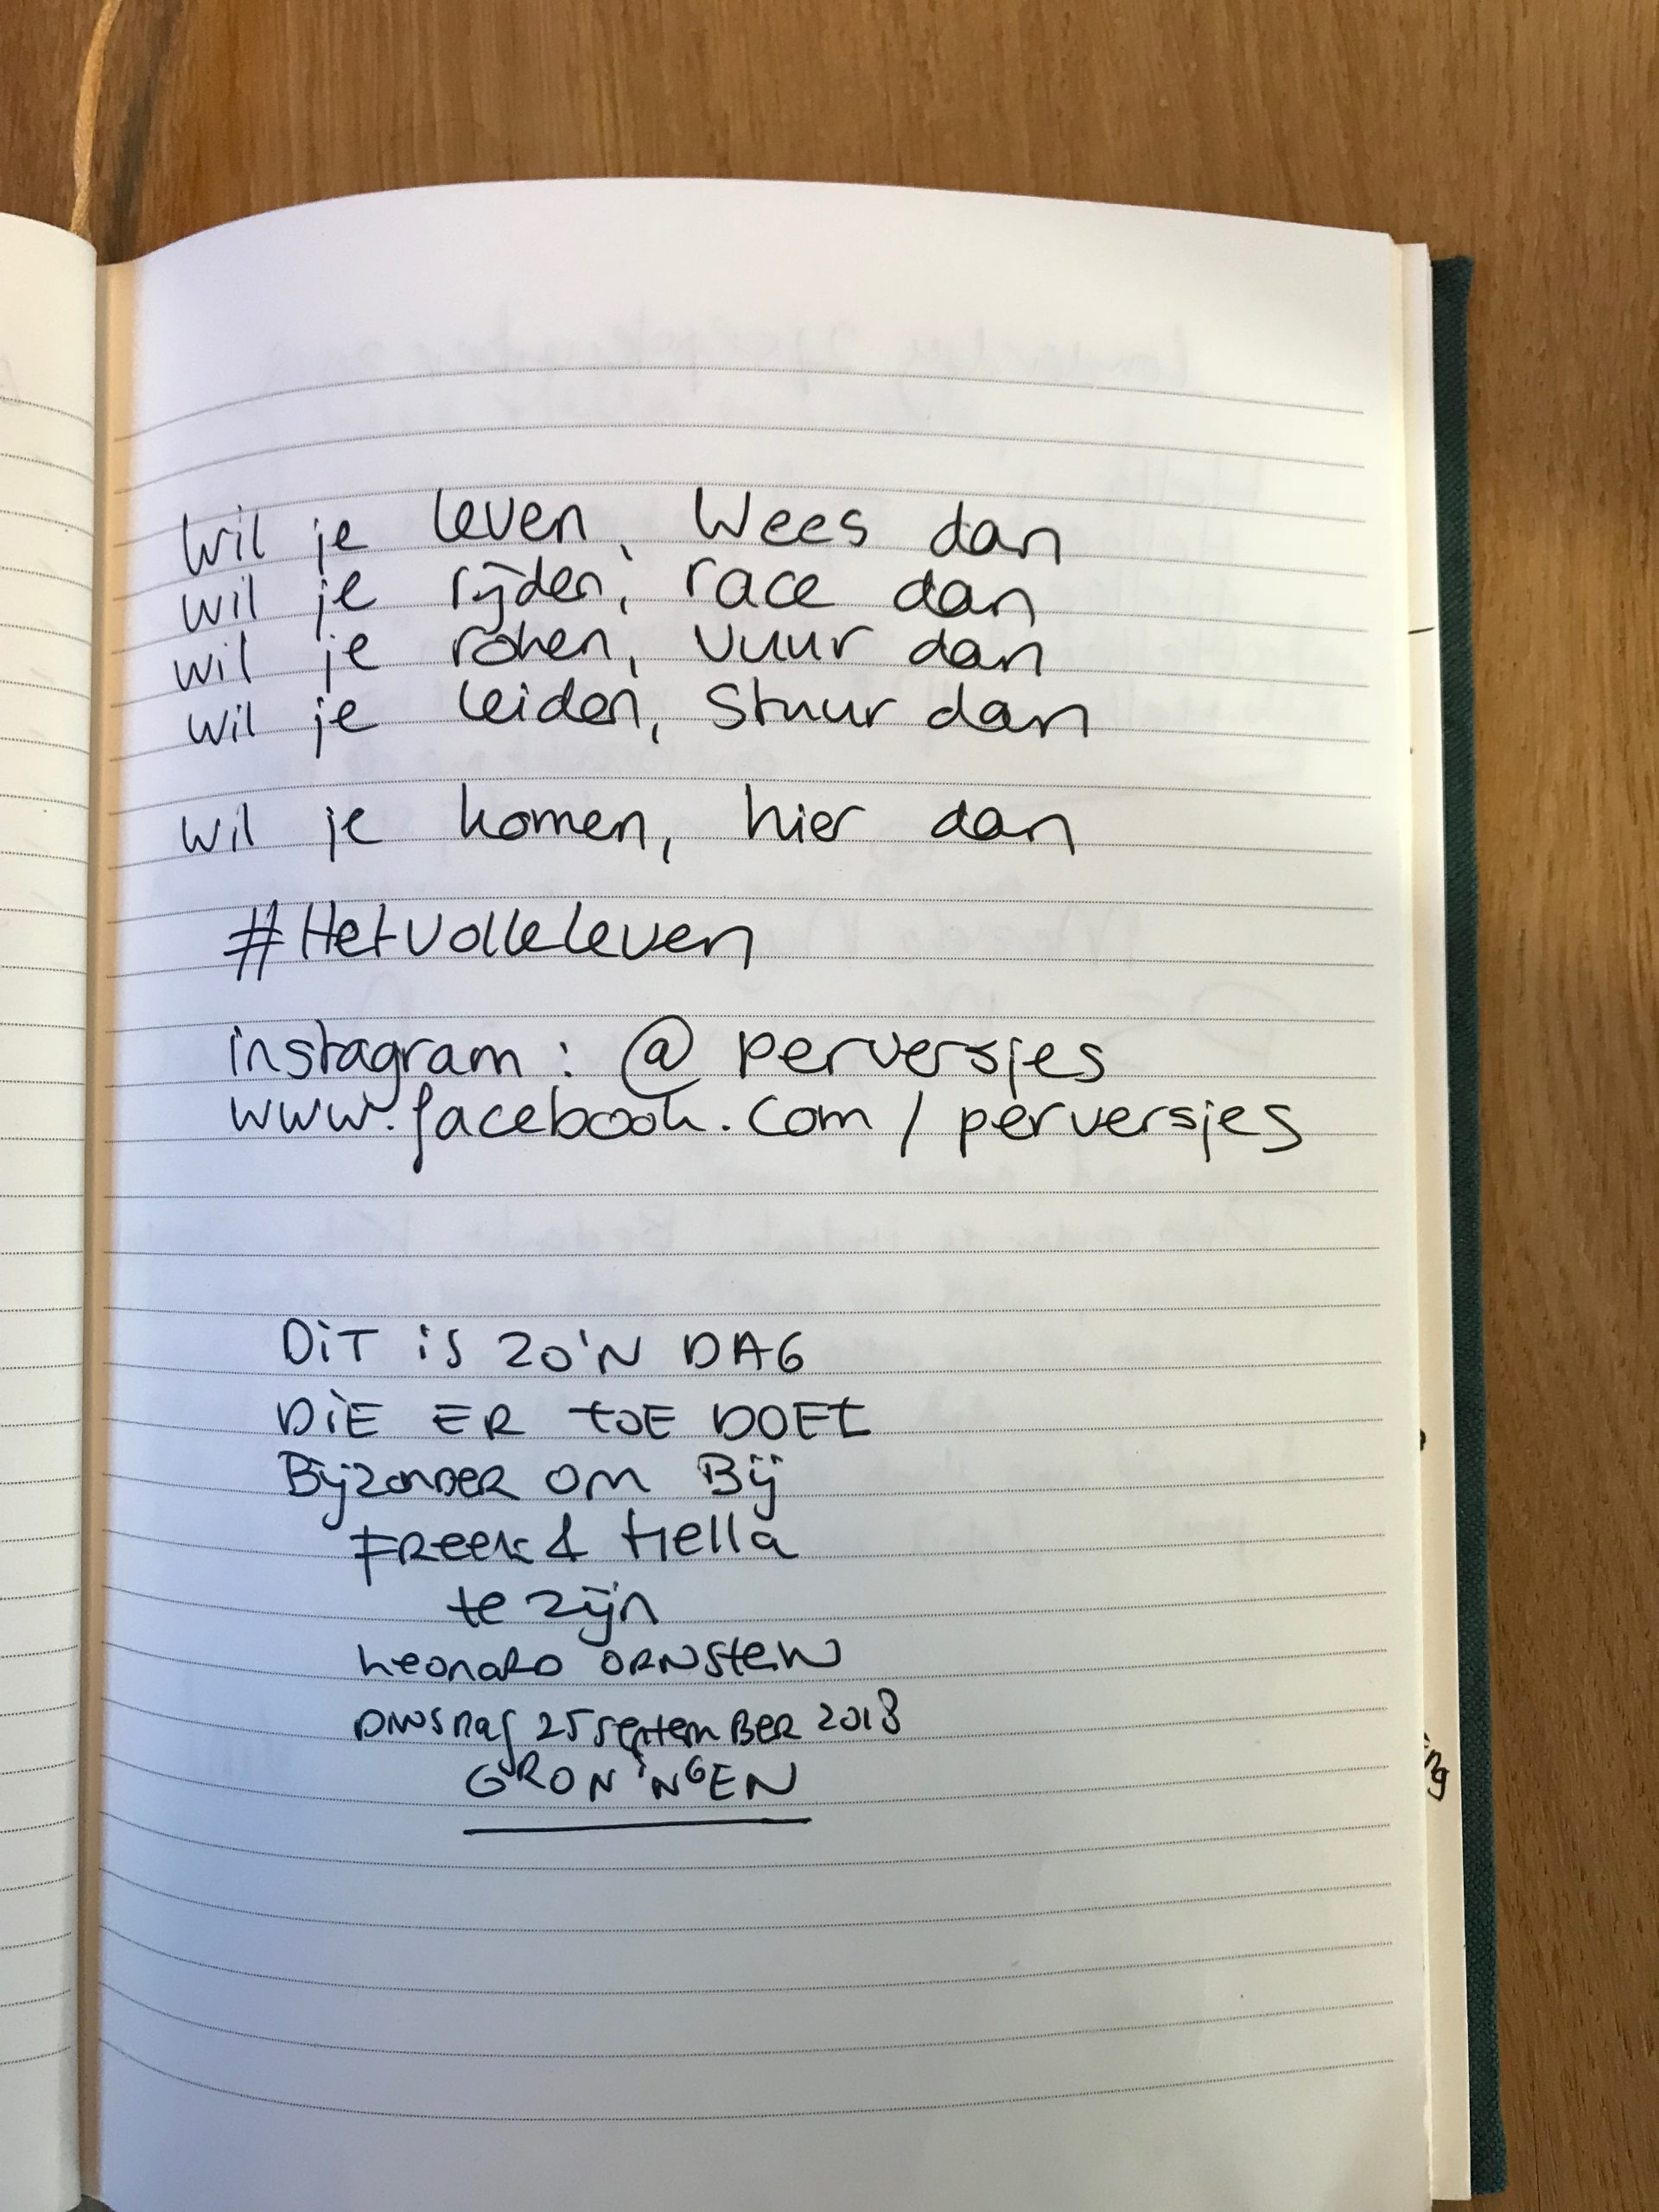 Wil je leven, Wees dan
wil je rijden, race dan
wil je roken, vuur dan
wil je leiden, Stuur dan
wil je komen, hier dan
#Hetvolleleven
instagram: @perversjes
www.facebook.com/perversjes
DiT iS ZO'N DAG
DiE ER tOE DOEt
BijzonDER om Bij
FReek & Hella
te zijn
Leonard ORNSteiN
DiNSDAG 25 septemBER 2018
GRONiNGEN